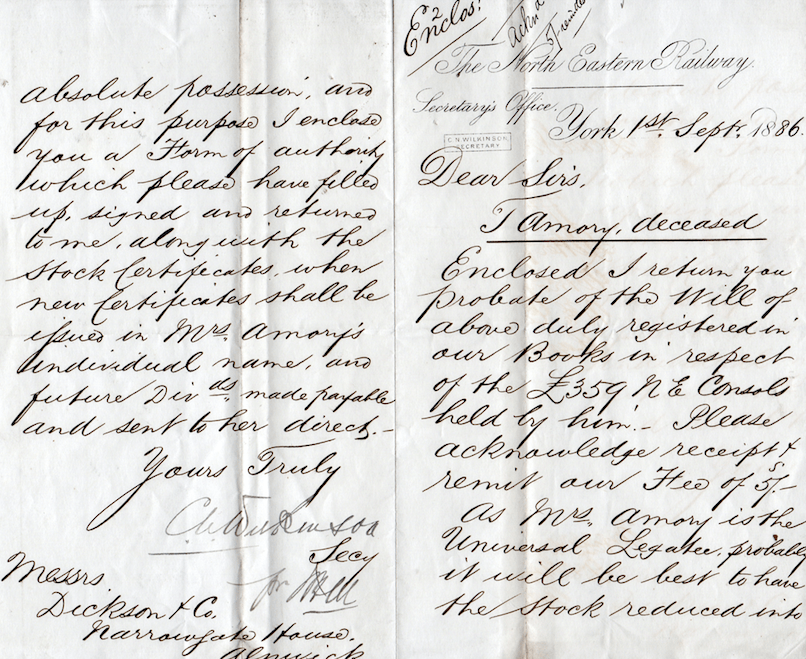 2
Enclos.
The North Eastern Railway.
Secretary's Office.
C.N. WILKINSON,
SECRETARY
York 1st. Septr. 1886.
Dear Sirs,
T Amory, deceased
Enclosed I return you
probate of the Will of
above duly registered in
our Books in respect
of the £359 N E Consols
held by him. – Please
acknowledge receipt &
remit our Fee of 5/-
As Mrs. Amory is the
Universal Legatee, probably
it will be best to have
the Stock reduced into
absolute possession, and
for this purpose I enclose
you a Form of authority
which please have filled
up, signed and returned
to me, along with the
Stock Certificates, when
new Certificates shall be
issued in Mrs. Amory's
individual name, and
future Divds. made payable
and sent to her direct. –
Yours Truly
C.N. Wilkinson
Secy
Messrs
Dickson & Co.
Narrowgate House,
Alnwick